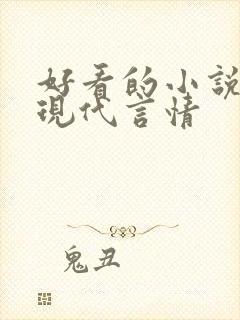 好看的小說
現代言情
鬼丑